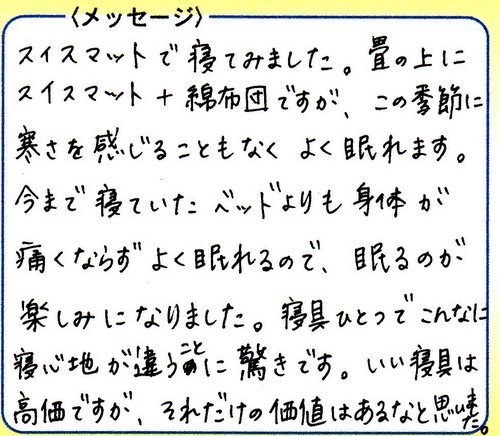 〈メッセージ〉
スイスマットで寝てみました。畳の上に
スイスマット+綿布団ですが、この季節に
寒さを感じることもなくよく眠れます。
今まで寝ていたベッドよりも身体が
痛くならずよく眠れるので、眠るのが
楽しみになりました。寝具ひとつでこんなに
寝心地が違うことに驚きです。いい寝具は
高価ですが、それだけの価値はあるなと思いました。